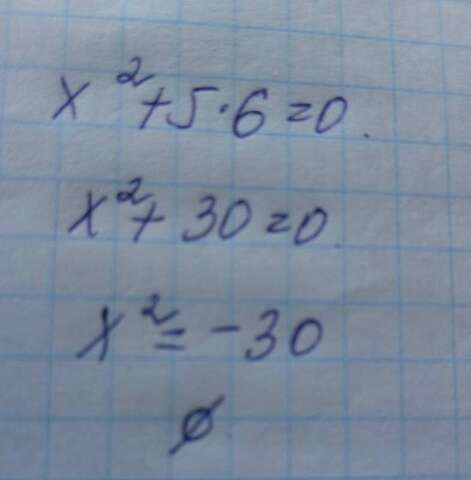 x²+5·6=0.
x²+30=0.
x²=-30
∅